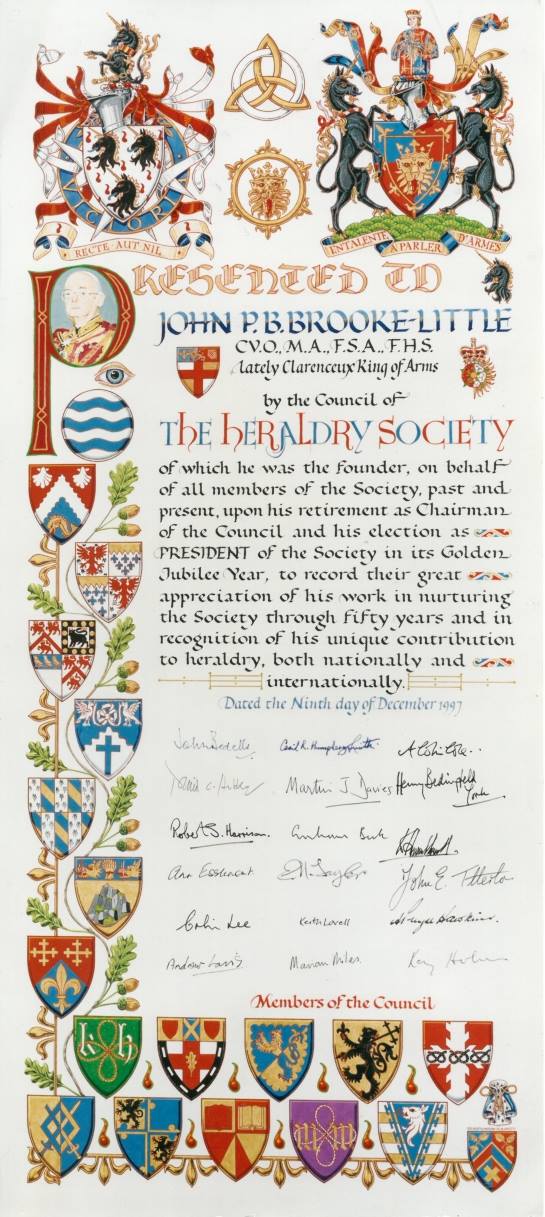 VICTORI
RECTE·AUT·NIL
ENTALENTÉ À PARLER D'ARMES
PRESENTED TO
JOHN P.B.BROOKE-LITTLE
C.V.O., M.A., F.S.A., F.H.S.
lately Clarenceux King of Arms
by the Council of
THE HERALDRY SOCIETY
of which he was the founder, on behalf
of all members of the Society, past and
present, upon his retirement as Chairman
of the Council and his election as
PRESIDENT of the Society in its Golden
Jubilee Year, to record their great
appreciation of his work in nurturing
the Society through fifty years and in
recognition of his unique contribution
to heraldry, both nationally and
internationally.
Dated the Ninth day of December 1997
John Bedells Cecil R. Humphery-Smith
Martin J Davies Henry Bedingfeld York
Robert S. Harrison.
Ann Esslemont John E. Titterton
Colin Lee Keith Lovell
Marian Miles
Members of the Council
k h